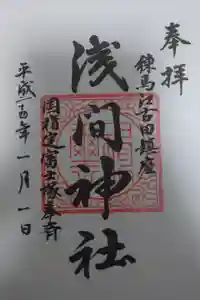 奉拝
練馬江古田鎮座
浅間神社
国指定富士塚奉斎
平成二四年一月一日